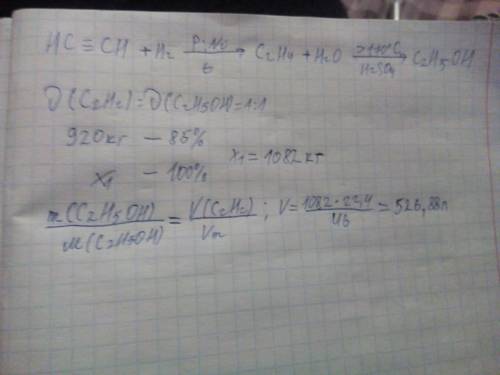 HC ≡ CH + H₂ —Pt;Ni/t→ C₂H₄ + H₂O —>140°C/H₂SO₄→ C₂H₅OH
∂(C₂H₂):∂(C₂H₅OH)=1:1
920кг – 85%
x₁ – 100% x₁ = 1082кг
m(C₂H₅OH)/M(C₂H₅OH) = V(C₂H₂)/Vm ; V = 1082·22,4/46 = 526,88л